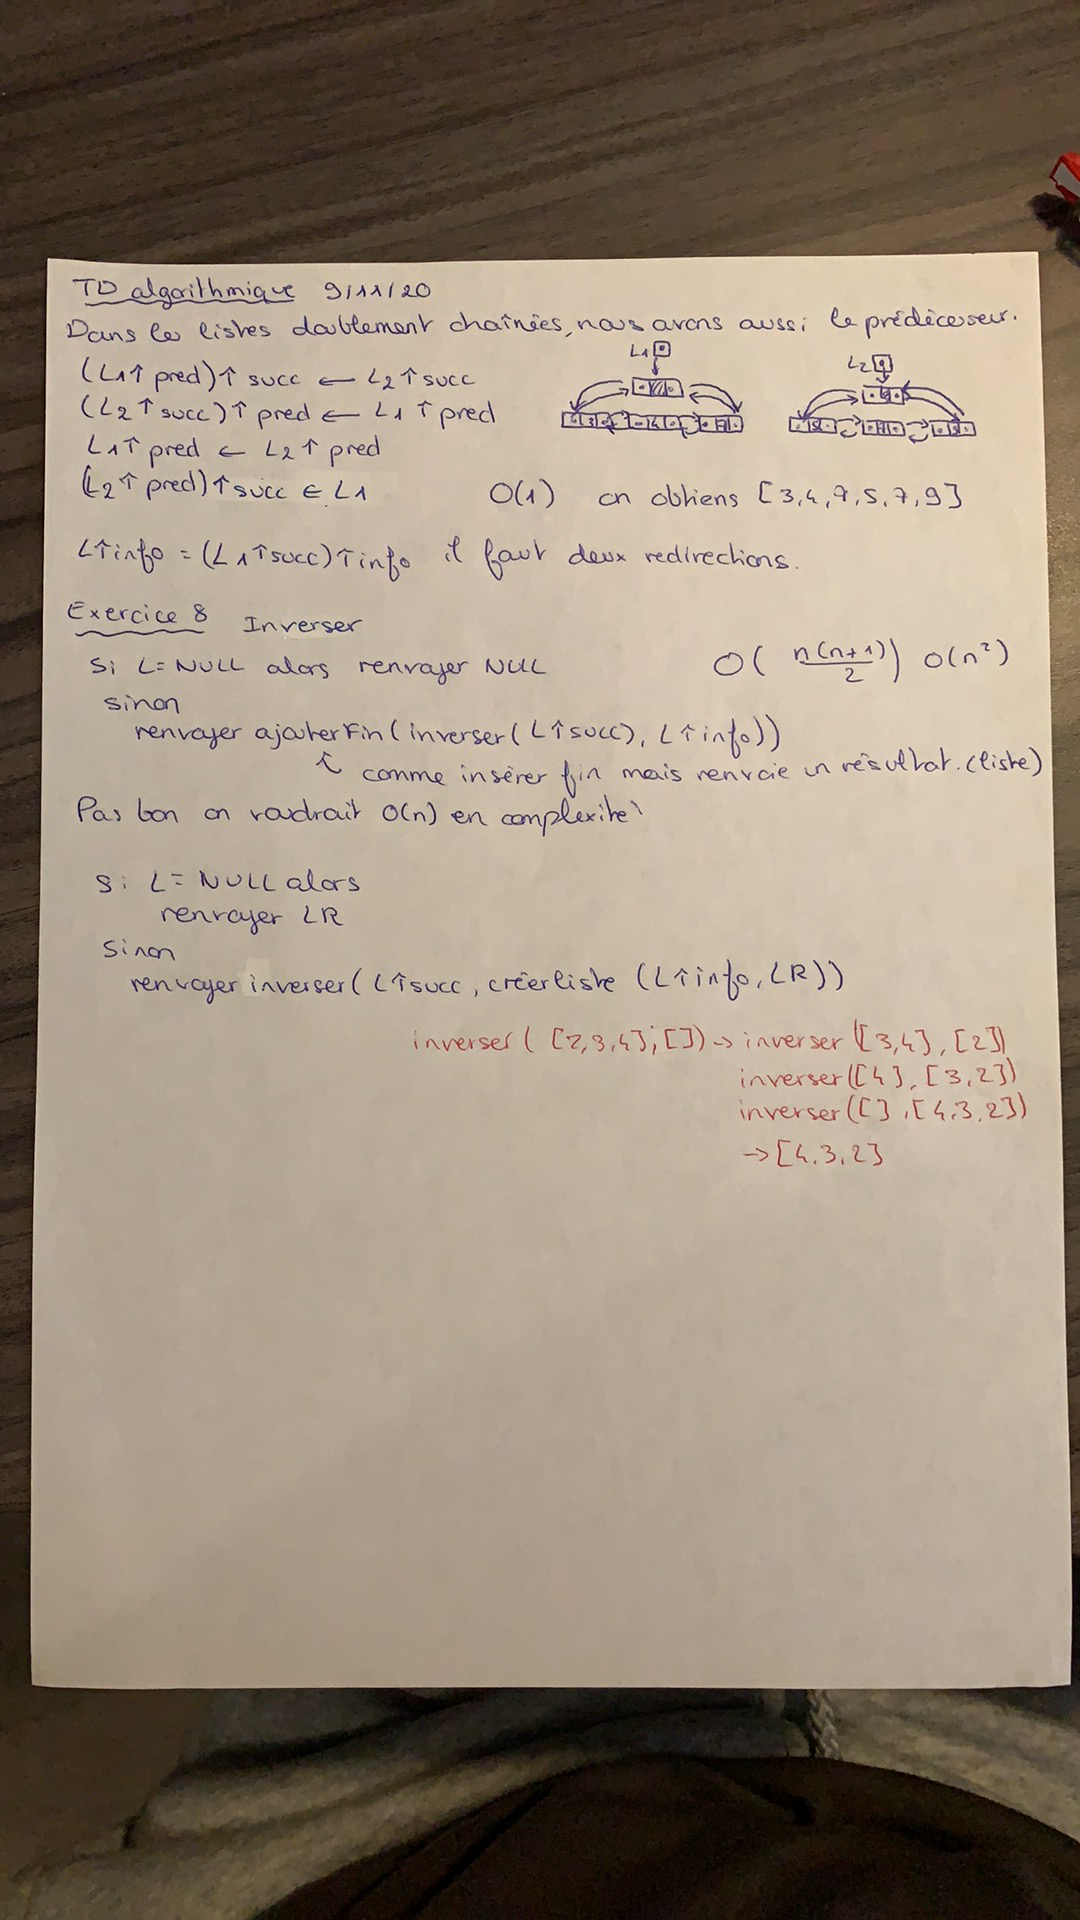 TD algorithmique 9/11/20
Dans les listes doublement chaînées, nous avons aussi le prédécesseur.
L1
L2
(L1↑ pred)↑ succ ← L2↑succ
(L2↑succ)↑pred ← L1↑pred
L1↑pred ← L2↑pred
(L2↑pred)↑succ ← L1 O(1) on obtiens [3,4,7,5,7,9]
L↑info = (L1↑succ)↑info il faut deux redirections.
Exercice 8 Inverser
Si L=NULL alors renvoyer NULL O( n(n+1)/2 ) O(n²)
sinon
renvoyer ajouterFin(inverser(L↑succ), L↑info))
↑ comme insérer fin mais renvoie un résultat. (liste)
Pas bon on voudrait O(n) en complexité
Si L= NULL alors
renvoyer LR
Sinon
renvoyer inverser(L↑succ, créerliste (L↑info, LR))
inverser( [2,3,4], []) → inverser([3,4], [2])
inverser([4], [3,2])
inverser([], [4,3,2])
→ [4,3,2]